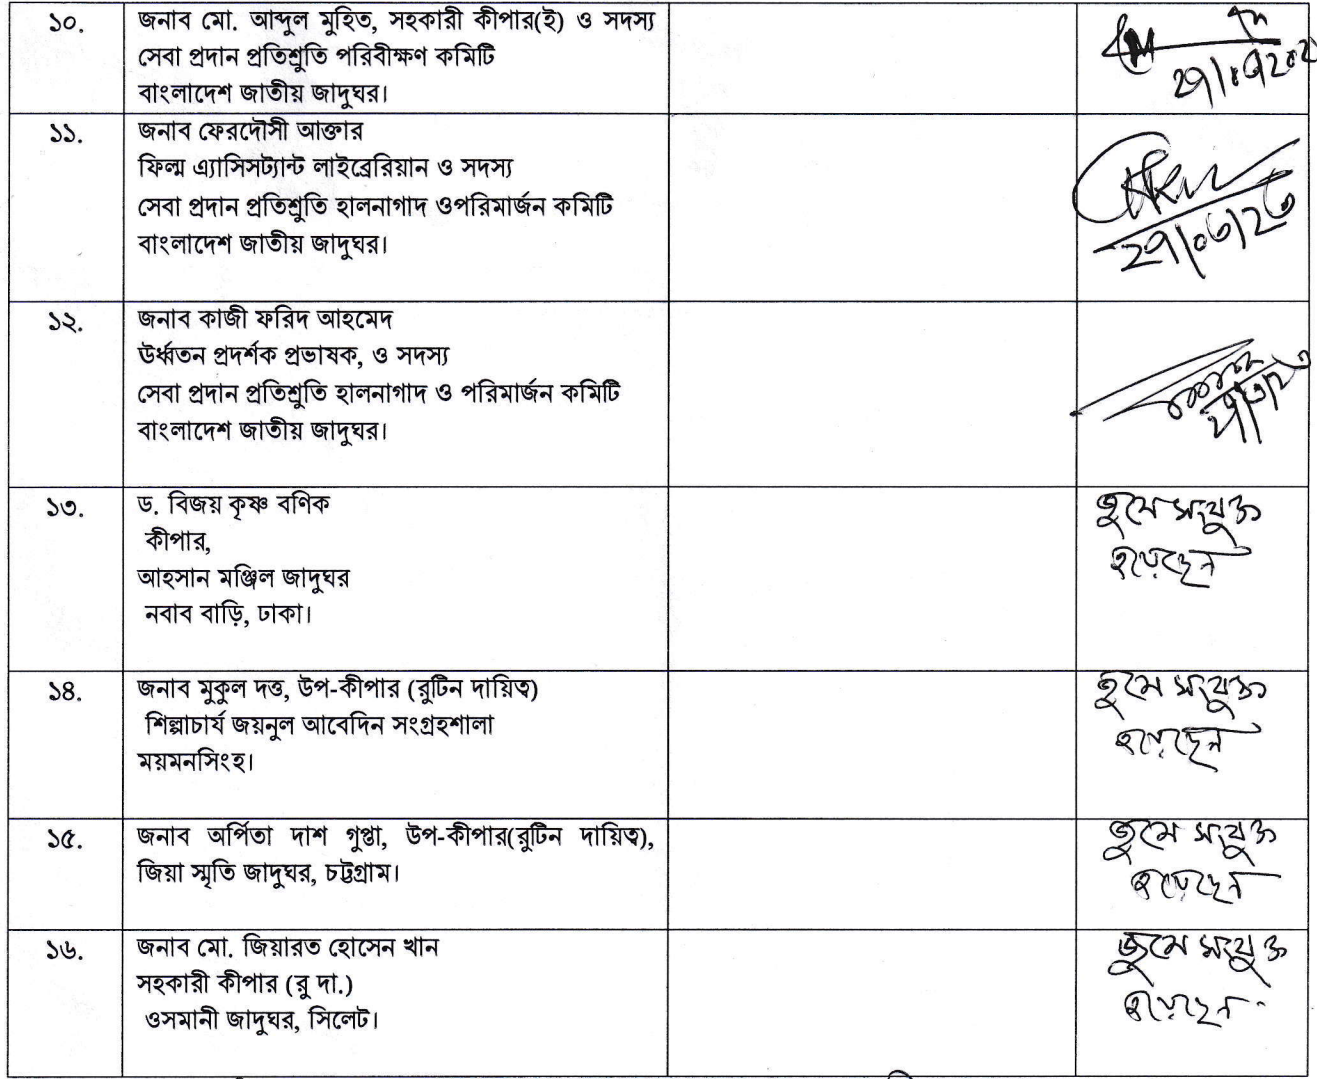 ১০.
জনাব মো. আব্দুল মুহিত, সহকারী কীপার(ই) ও সদস্য
সেবা প্রদান প্রতিশ্রুতি পরিবীক্ষণ কমিটি
বাংলাদেশ জাতীয় জাদুঘর।
১১.
জনাব ফেরদৌসী আক্তার
ফিল্ম এ্যাসিসট্যান্ট লাইব্রেরিয়ান ও সদস্য
সেবা প্রদান প্রতিশ্রুতি হালনাগাদ ওপরিমার্জন কমিটি
বাংলাদেশ জাতীয় জাদুঘর।
২৭/০৩/২৩
১২.
জনাব কাজী ফরিদ আহমেদ
উর্ধ্বতন প্রদর্শক প্রভাষক, ও সদস্য
সেবা প্রদান প্রতিশ্রুতি হালনাগাদ ও পরিমার্জন কমিটি
বাংলাদেশ জাতীয় জাদুঘর।
১৩.
ড. বিজয় কৃষ্ণ বণিক
কীপার,
আহসান মঞ্জিল জাদুঘর
নবাব বাড়ি, ঢাকা।
জুমে সংযুক্ত
হয়েছেন
১৪.
জনাব মুকুল দত্ত, উপ-কীপার (রুটিন দায়িত্ব)
শিল্পাচার্য জয়নুল আবেদিন সংগ্রহশালা
ময়মনসিংহ।
জুমে সংযুক্ত
হয়েছেন
১৫.
জনাব অর্পিতা দাশ গুপ্তা, উপ-কীপার(রুটিন দায়িত্ব),
জিয়া স্মৃতি জাদুঘর, চট্টগ্রাম।
জুমে সংযুক্ত
হয়েছেন
১৬.
জনাব মো. জিয়ারত হোসেন খান
সহকারী কীপার (রু দা.)
ওসমানী জাদুঘর, সিলেট।
জুমে সংযুক্ত
হয়েছেন